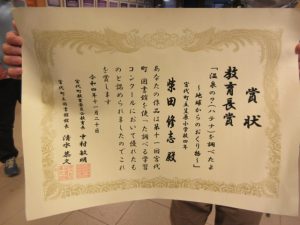 賞状
教育長賞
「温泉の?(ハテナ)を調べたよ
～地球からのおくり物～」
宮代町立笠原小学校四年
柴田修志 殿
あなたの作品は第十一回宮代
町図書館を使った調べる学習
コンクールにおいて優れたも
のと認められましたのでこれ
を賞します
令和四年十一月二十日
宮代町教育委員会教育長 中村敏明
宮代町立図書館館長 清水恭文